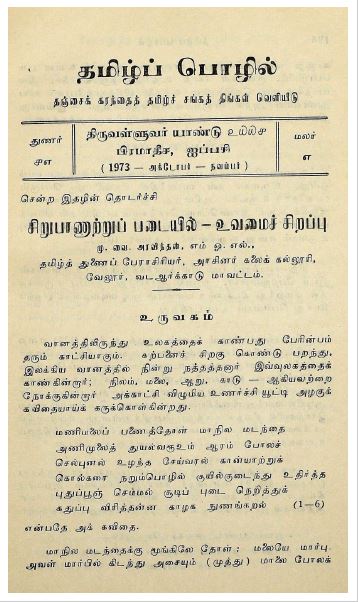 தமிழ்ப் பொழில்
தஞ்சைக் கரந்தைத் தமிழ்ச் சங்கத் திங்கள் வெளியீடு
துணர்
௪௭
திருவள்ளுவர் யாண்டு
பிரமாதீச, ஐப்பசி
( 1973 — அக்டோபர் - நவம்பர் )
மலர்
௭
சென்ற இதழின் தொடர்ச்சி
சிறுபாணாற்றுப் படையில் – உவமைச் சிறப்பு
மு. வை. அரவிந்தன், எம் ஓ. எல்.,
தமிழ்த் துணைப் பேராசிரியர், அரசினர் கலைக் கல்லூரி,
வேலூர், வடஆர்க்காடு மாவட்டம்.
உருவகம்
வானத்திலிருந்து உலகத்தைக் காண்பது பேரின்பம்
தரும் காட்சியாகும். கற்பனைச் சிறகு கொண்டு பறந்து,
இலக்கிய வானத்தில் நின்று நத்தத்தனார் இவ்வுலகத்தைக்
காண்கின்றார்; நிலம், மலை, ஆறு, காடு — ஆகியவற்றை
நோக்குகின்றார் அக்காட்சி விழுமிய உணர்ச்சி யூட்டி அழகுக்
கவிதையாய்க் கருக்கொள்கின்றது.
மணிமலைப் பணைத்தோள் மாநில மடந்தை
அணிமுலைத் துயல்வரூஉம் ஆரம் போலச்
செல்புனல் உழந்த சேய்வரல் கான்யாற்றுக்
கொல்கரை நறும்பொழில் குயில்குடைந்து உதிர்த்த
புதுப்பூஞ் செம்மல் சூடிப் புடை நெறித்துக்
கதுப்பு விரித்தன்ன காழக நுணங்கறல் (1—6)
என்பதே அக் கவிதை.
மாநில மடந்தைக்கு மூங்கிலே தோள் ; மலையே மார்பு.
அவள் மார்பில் கிடத்து அசையும் (முத்து) மாலை போலக்